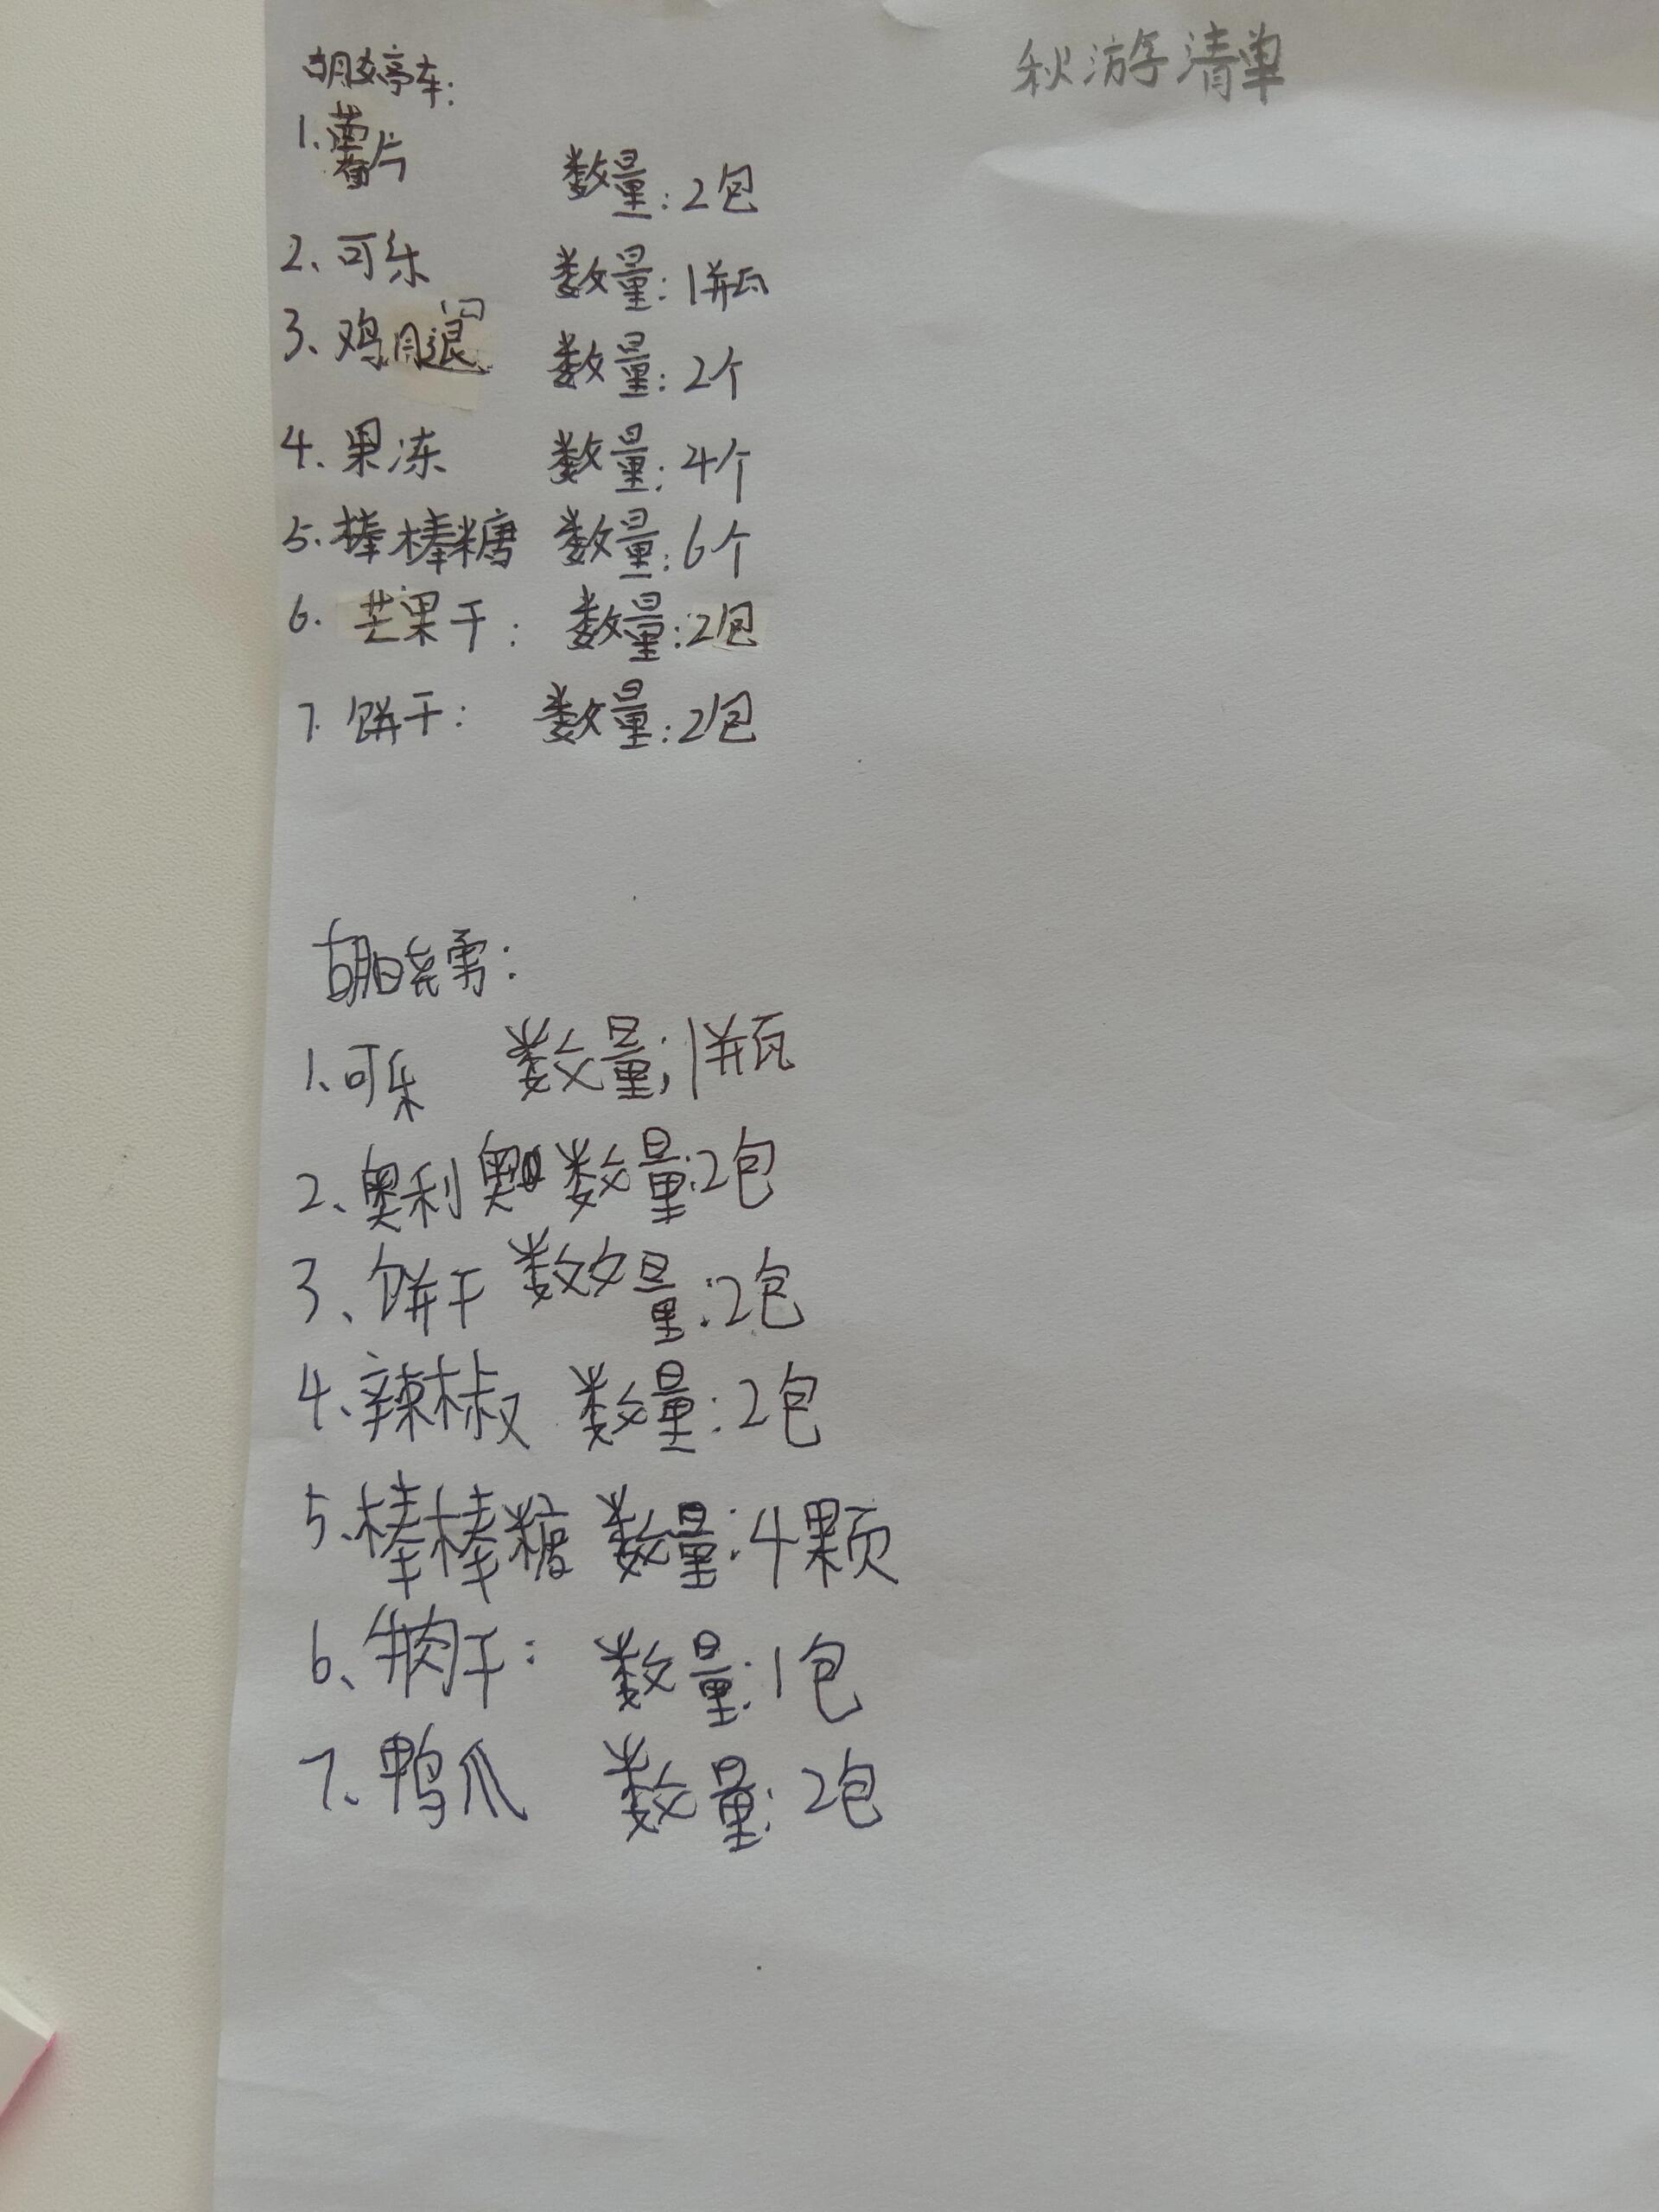 秋游清单
胡婷车:
1.薯片 数量:2包
2、可乐 数量:1瓶
3、鸡腿 数量:2个
4.果冻 数量:4个
5.棒棒糖 数量:6个
6.芒果干: 数量:2包
7.饼干: 数量:2包
胡晓雳:
1、可乐 数量:1瓶
2、奥利奥 数量:2包
3、饼干 数量:2包
4、辣椒 数量:2包
5、棒棒糖 数量:4颗
6、牛肉干: 数量:1包
7、鸭爪 数量:2包